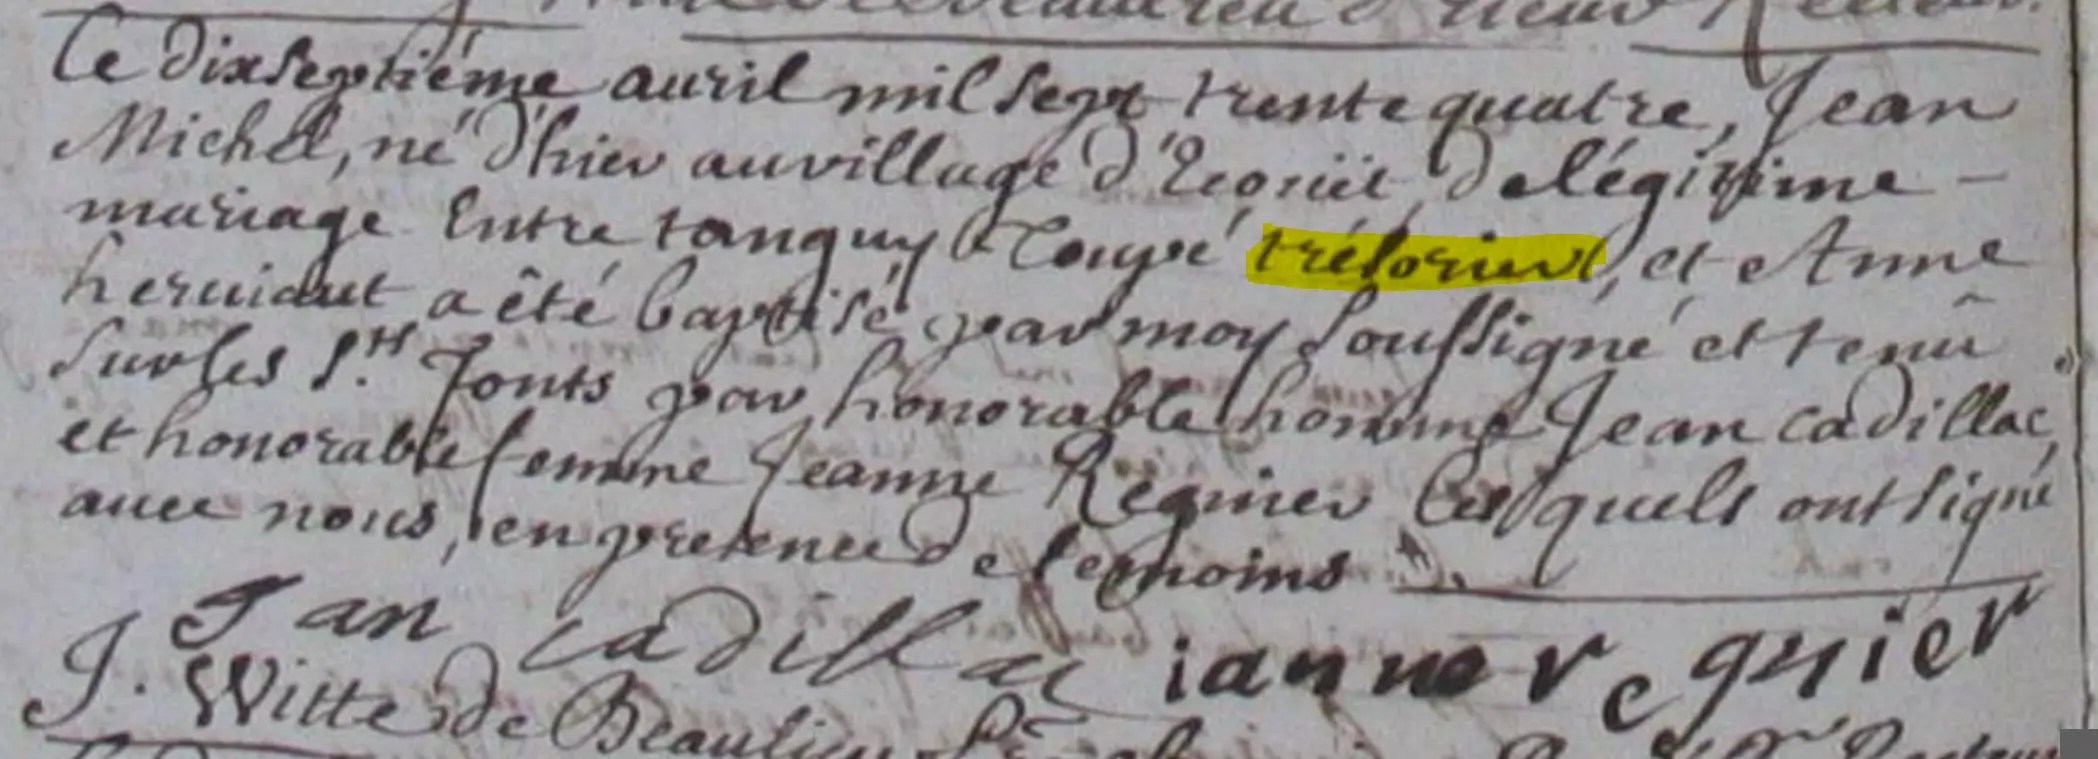 Ce dixseptiéme auril mil sept trente quatre, Jean
Michel, né d'hier au village d' de légitime -
mariage Entre tanguy Coupé trésorier, et Anne
heruiaut a été baptisé par moy soussigné et tenû
sur les s.ts fonts par honorable homme Jean cadillac,
et honorable femme Jeanne Reguier lesquels ont signé
auec nous, en presence de temoins
Jan cadillac ianne reguier
J. Witte de Beaulieu